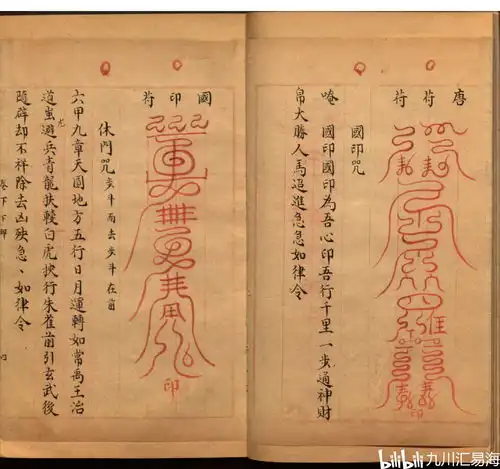 唐苻苻
國印咒
唵 國印國印為吾心印吾行千里一步通神財
帛大勝人馬迢進急急如律令
國印苻
印
休門咒 亥斗而去亥斗在前
六甲九章天圓地方五行日月運轉如常禹王治
道蚩尤避兵青龍扶轅白虎挾行朱雀前引玄武後
隨辟却不祥除去凶殃急、如律令
四
bilibili 九川汇易海